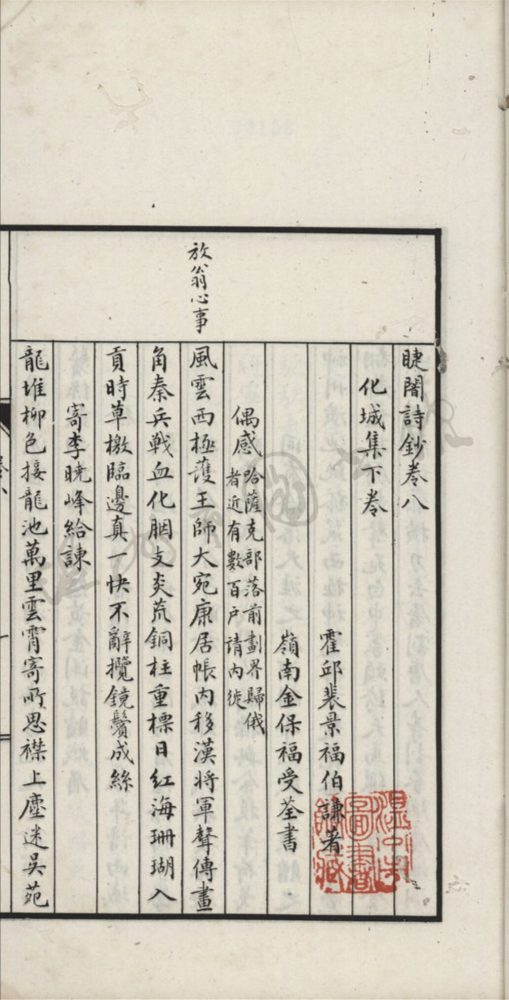 睫闇詩鈔卷八
化城集下卷
霍邱裴景福伯謙著
嶺南金保福受荃書
偶感
哈薩克部落前劃界歸俄
者近有數百户請内徙
放翁心事
風雲西極護王師大宛康居帳内移漢將軍聲傳畫
角秦兵戰血化胭支炎荒銅柱重標日紅海珊瑚入
貢時草檄臨邊真一快不辭攬鏡鬢成絲
寄李曉峰給諫
龍堆柳色接龍池萬里雲霄寄所思襟上塵迷吳苑